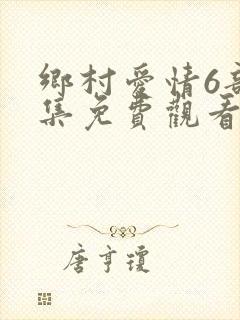 鄉村愛情6部
集免費觀看
唐亨瓊